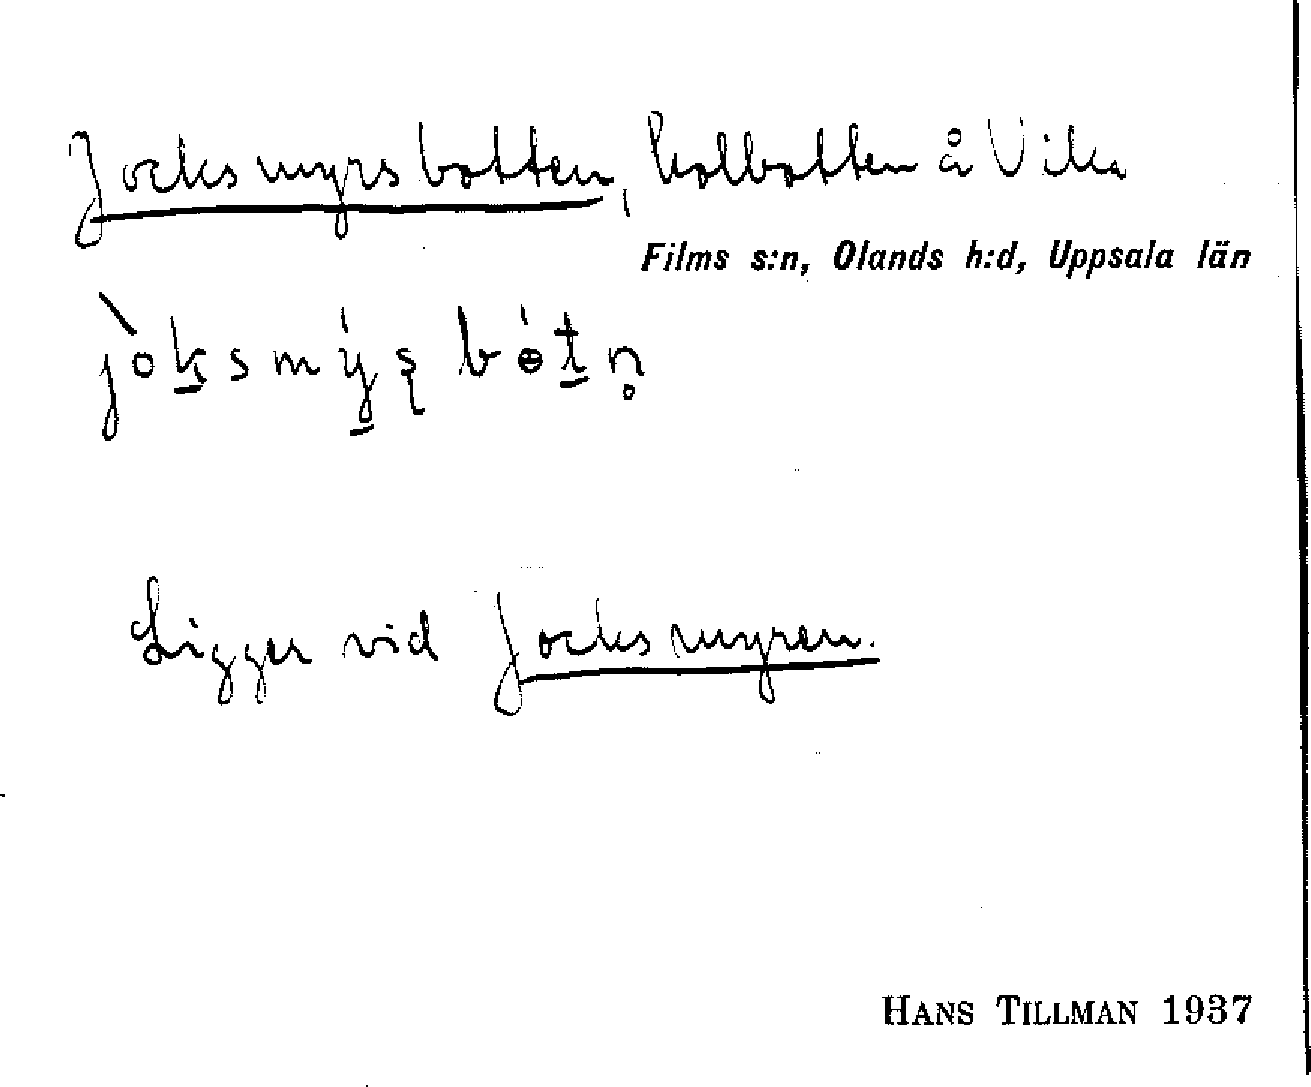 Jocksmyrsbotten, kolbotten å Vika
Films s:n, Olands h:d, Uppsala län
jòk̲smý̲ʂbɵ́t̲n̥
Ligger vid Jocksmyren.
HANS TILLMAN 1937